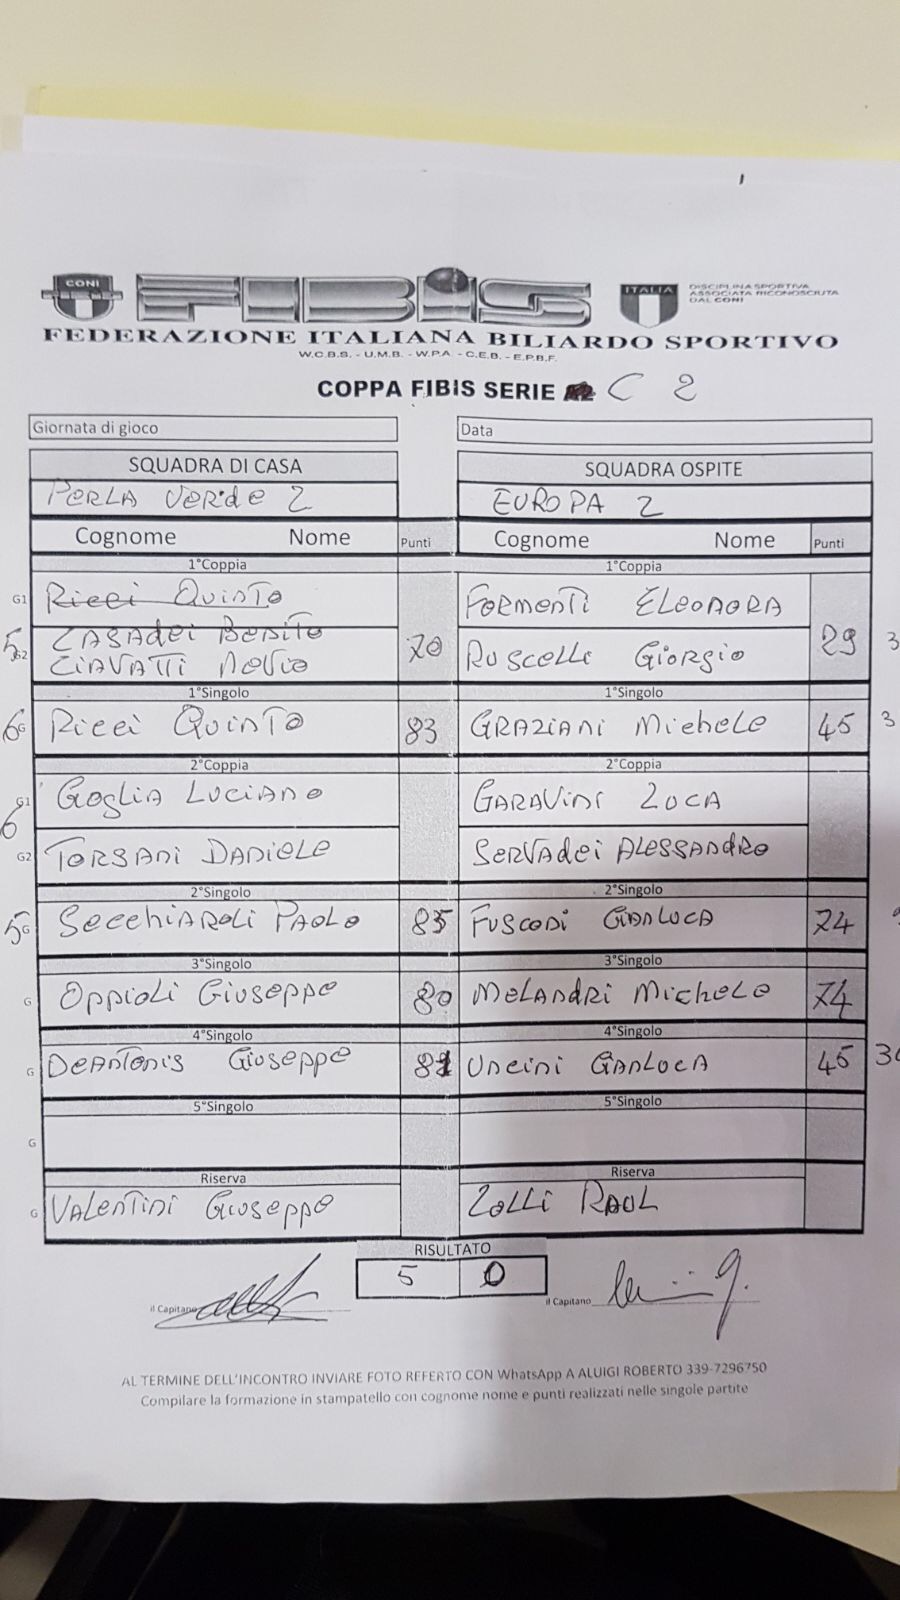 CONI
FIBiS
ITALIA
DISCIPLINA SPORTIVA
ASSOCIATA RICONOSCIUTA
DAL CONI
FEDERAZIONE ITALIANA BILIARDO SPORTIVO
W.C.B.S. - U.M.B. - W.P.A. - C.E.B. - E.P.B.F.
COPPA FIBIS SERIE C 2
Giornata di gioco Data
SQUADRA DI CASA SQUADRA OSPITE
PERLA VERDE 2 EUROPA 2
Cognome Nome Punti Cognome Nome Punti
1°Coppia 1°Coppia
G1 Ricci Quinto FORMENTI ELEONORA
CASADEI BENITO
5 G2 CIAVATTI NOVIO 70 RUSCELLI GIORGIO 29 3
1°Singolo 1°Singolo
6 G Ricci Quinto 83 GRAZIANI Michele 45 3
2°Coppia 2°Coppia
G1 GOGLIA LUCIANO GARAVINI LUCA
6
G2 TORSANI DANIELE SERVADEI ALESSANDRO
2°Singolo 2°Singolo
5 G SECCHIAROLI PAOLO 85 FUSCONI GIANLUCA 74
3°Singolo 3°Singolo
G OPPIOLI GIUSEPPE 80 MELANDRI MICHELE 74
4°Singolo 4°Singolo
G DEANTONIS GIUSEPPE 81 UNCINI GANLUCA 45 30
5°Singolo 5°Singolo
G
Riserva Riserva
G VALENTINI GIUSEPPE ZOLLI RAUL
RISULTATO
5 0
il Capitano il Capitano
AL TERMINE DELL'INCONTRO INVIARE FOTO REFERTO CON WhatsApp A ALUIGI ROBERTO 339-7296750
Compilare la formazione in stampatello con cognome nome e punti realizzati nelle singole partite